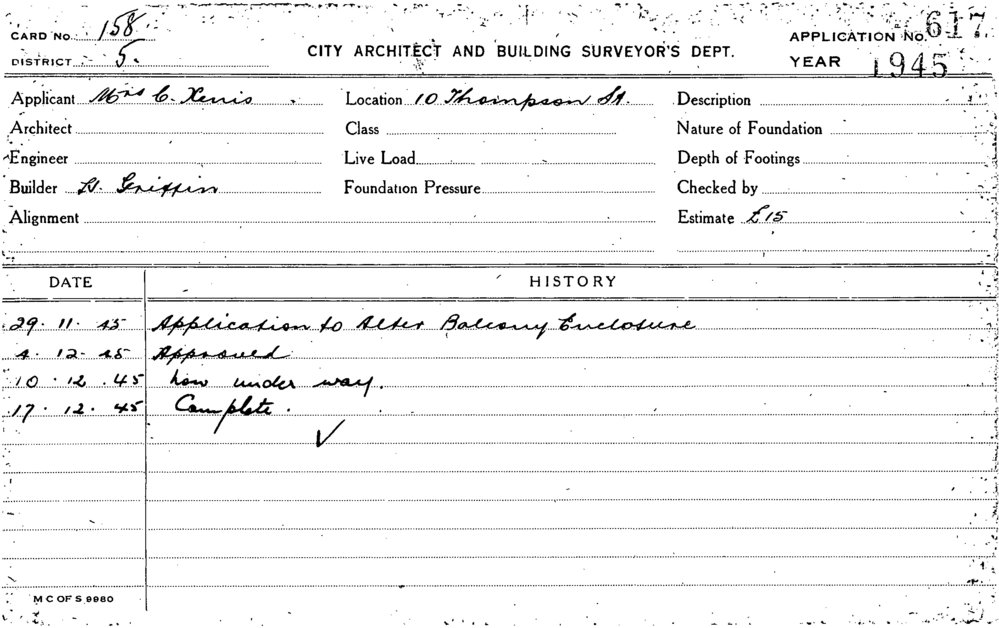 CARD No. 158.
DISTRICT 5.
CITY ARCHITECT AND BUILDING SURVEYOR'S DEPT.
APPLICATION No. 617
YEAR 1945
Applicant Mrs C. Xenis Location 10 Thompson St. Description
Architect Class Nature of Foundation
Engineer Live Load Depth of Footings
Builder H. Griffin Foundation Pressure Checked by
Alignment Estimate £15
DATE HISTORY
29. 11. 45 Application to Alter Balcony Enclosure
4. 12. 45 Approved
10. 12. 45 now under way.
17. 12. 45 Complete.
M C OF S 9980